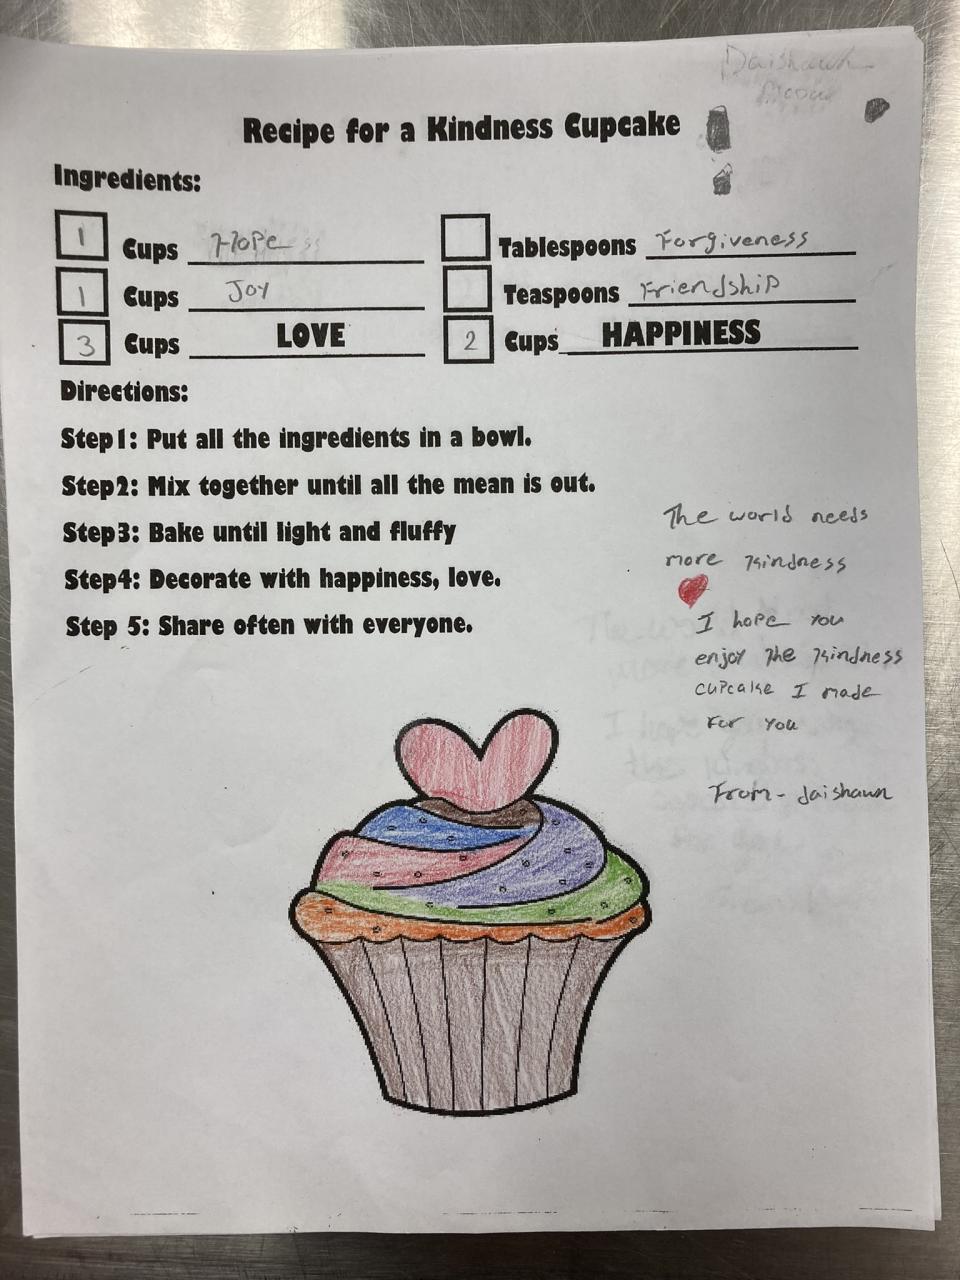 Daishawn
Recipe for a Kindness Cupcake
Ingredients:
1 Cups Hope
Tablespoons Forgiveness
1 Cups Joy
Teaspoons Friendship
3 Cups LOVE
2 Cups HAPPINESS
Directions:
Step1: Put all the ingredients in a bowl.
Step2: Mix together until all the mean is out.
Step3: Bake until light and fluffy
Step4: Decorate with happiness, love.
Step 5: Share often with everyone.
The world needs
more kindness
I hope you
enjoy the kindness
cupcake I made
For you
From- daishawn